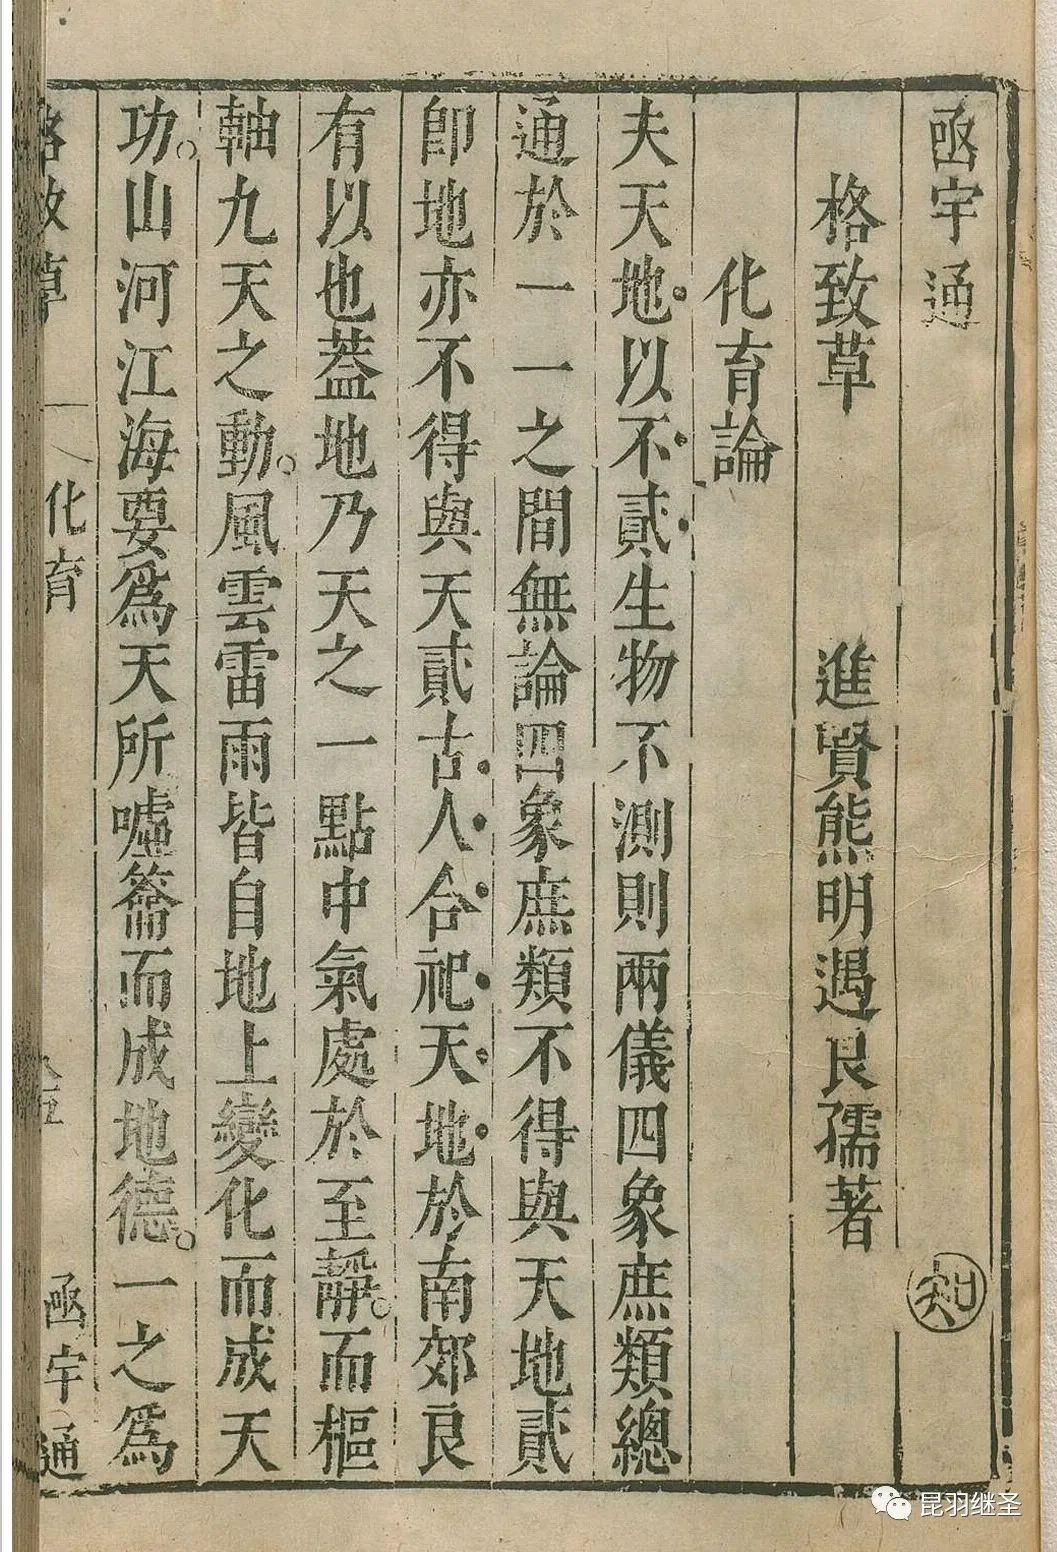 函宇通
知
格致草 進賢熊明遇良孺著
化育論
夫天地以不貳生物不測則兩儀四象庶類總
通於一一之間無論四象庶類不得與天地貳
卽地亦不得與天貳古人合祀天地於南郊良
有以也葢地乃天之一點中氣處於至靜。而樞
軸九天之動。風雲雷雨皆自地上變化而成天
功。山河江海要爲天所噓籥而成地德。一之爲
格致草 化育 函宇通
昆羽继圣